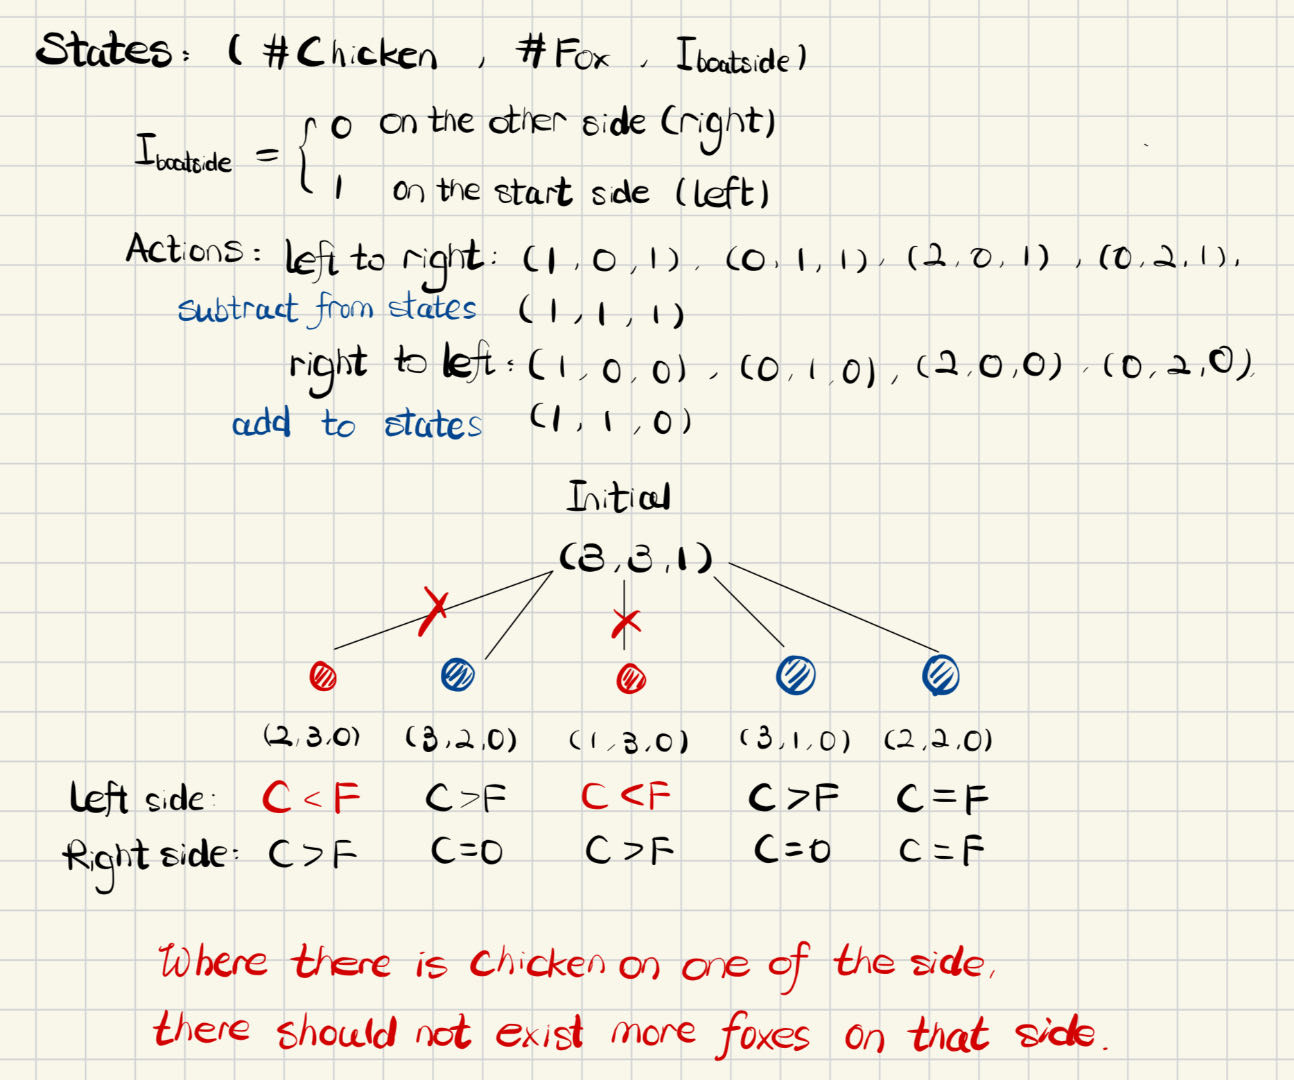 States: ( #Chicken , #Fox , I boatside )
I boatside = { 0 on the other side (right)
1 on the start side (left)
Actions: left to right: (1,0,1), (0,1,1), (2,0,1), (0,2,1),
subtract from states (1,1,1)
right to left: (1,0,0), (0,1,0), (2,0,0), (0,2,0),
add to states (1,1,0)
Initial
(3,3,1)
(2,3,0) (3,2,0) (1,3,0) (3,1,0) (2,2,0)
Left side: C<F C>F C<F C>F C=F
Right side: C>F C=0 C>F C=0 C=F
Where there is chicken on one of the side,
there should not exist more foxes on that side.